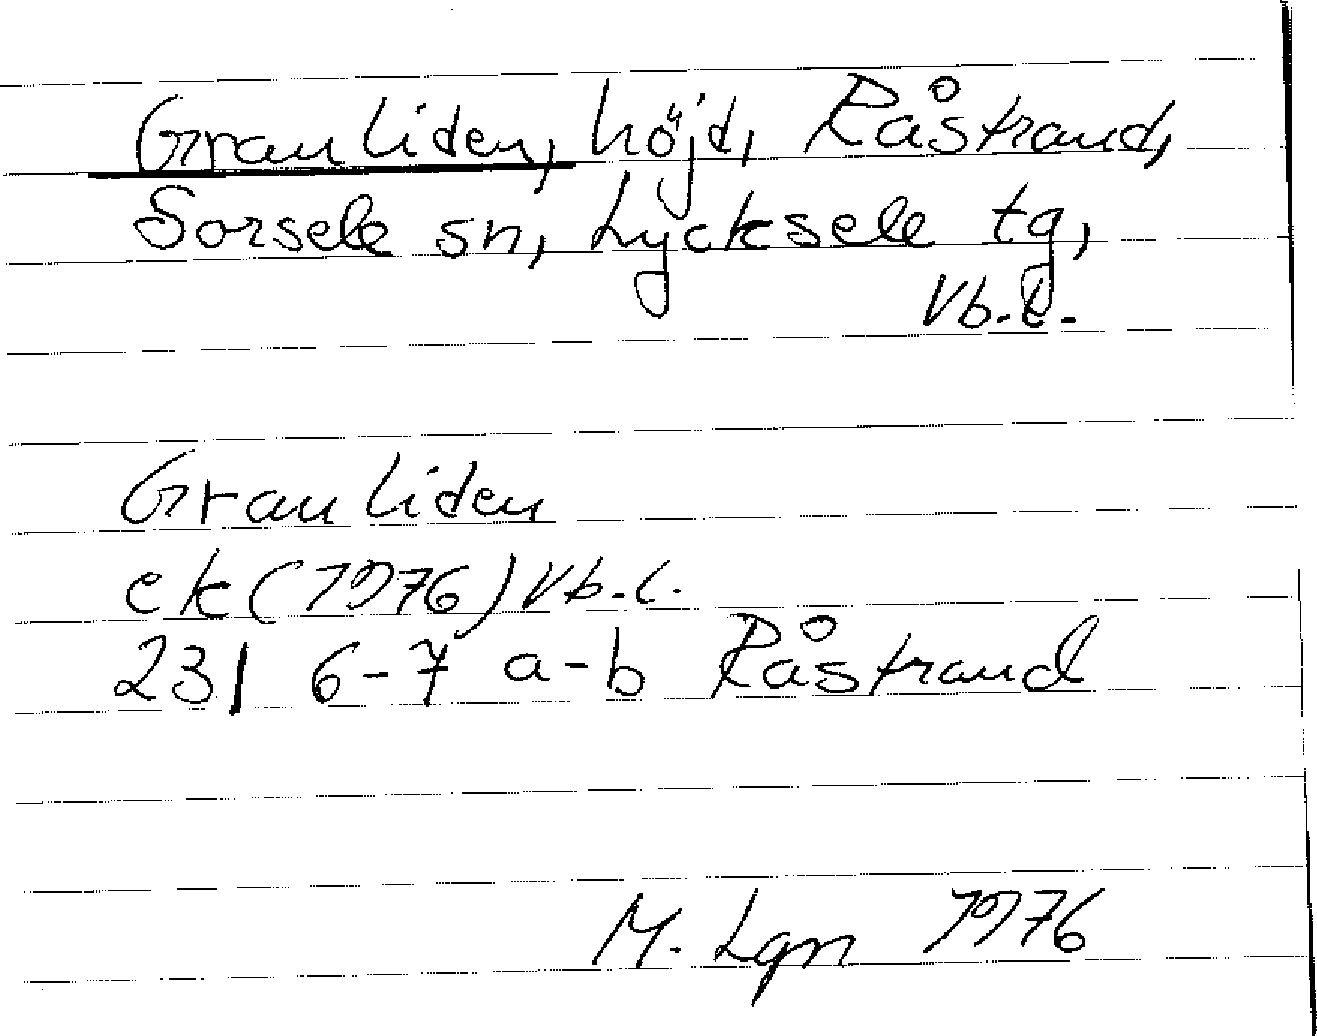 Granliden, höjd, Råstrand,
Sorsele sn, Lycksele tg,
Vb.l.
Granliden
ek (1976) Vb.l.
23I 6-7 a-b Råstrand
M. Lgn 1976